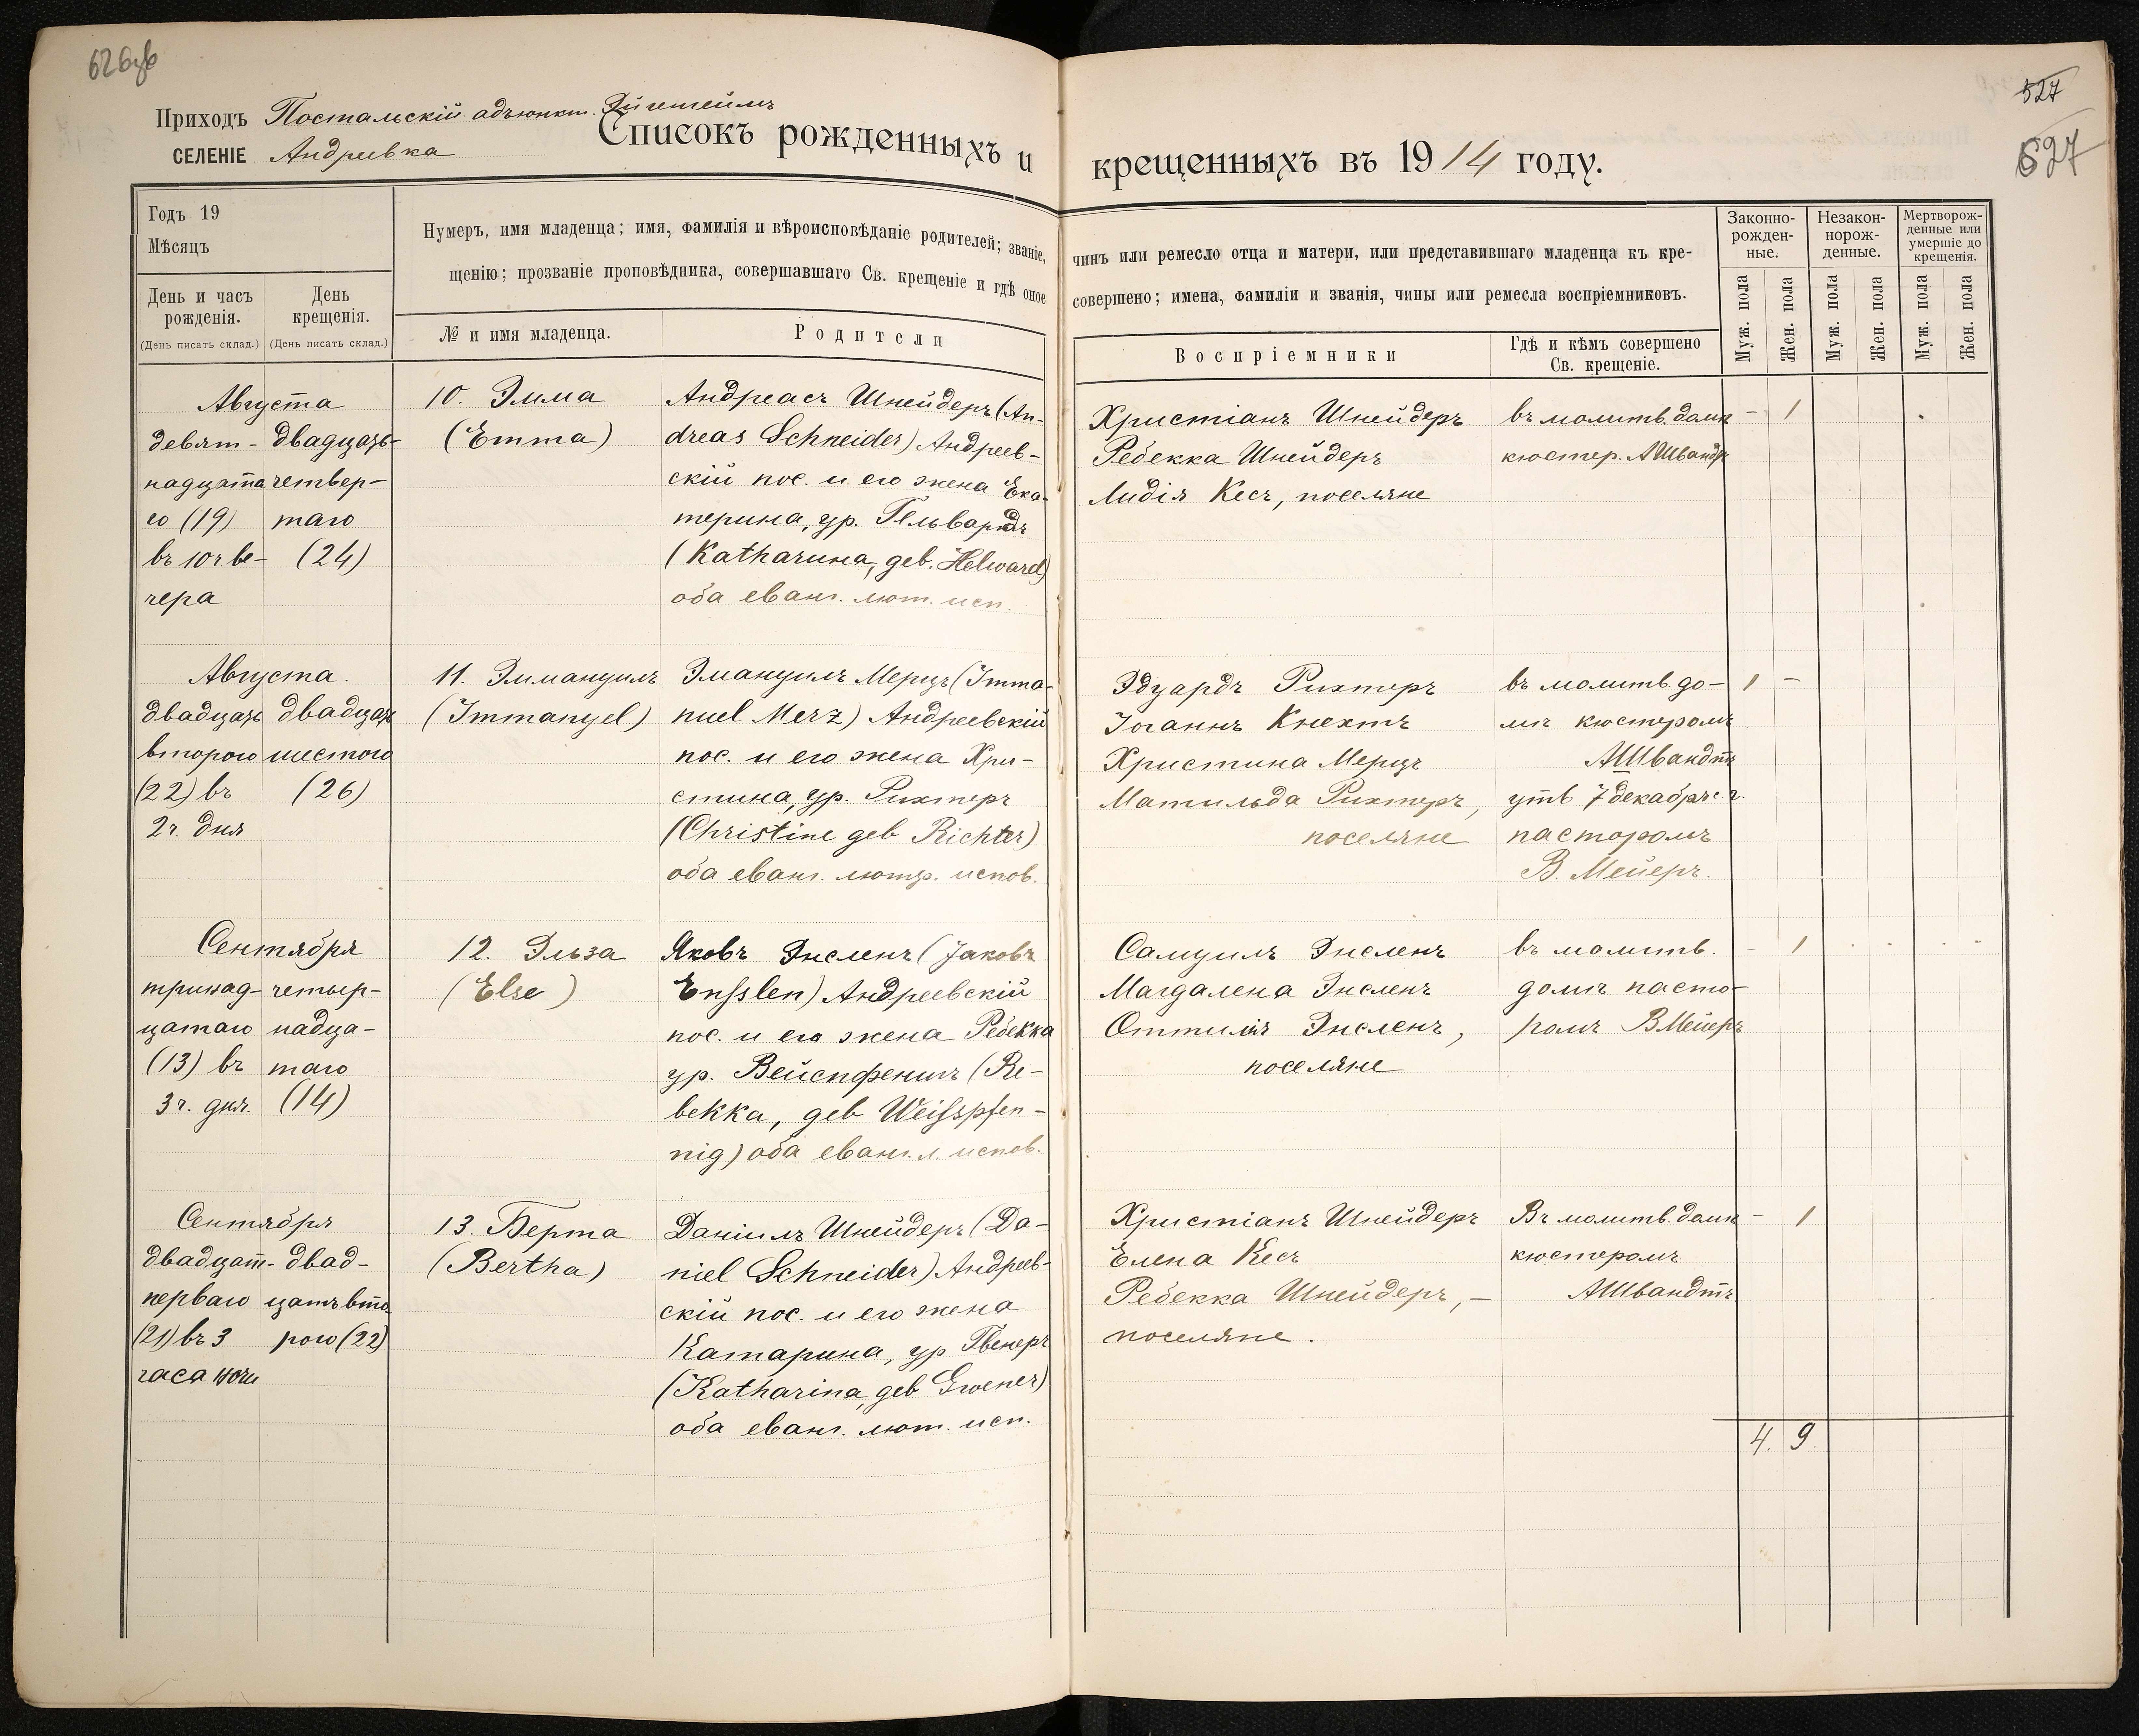 626об
527
627
Приходъ Постальскій адъюнкт. Эйгенгеймъ
СЕЛЕНІЕ Андреевка
Списокъ рожденныхъ и крещенныхъ въ 1914 году.
Годъ 19
Мѣсяцъ
День и часъ рожденія.
(День писать склад.)
День крещенія.
(День писать склад.)
Нумеръ, имя младенца; имя, фамилія и вѣроисповѣданіе родителей; званіе, чинъ или ремесло отца и матери, или представившаго младенца къ кре-
щенію; прозваніе проповѣдника, совершавшаго Св. крещеніе и гдѣ оное совершено; имена, фамиліи и званія, чины или ремесла воспріемниковъ.
№ и имя младенца.
Родители
Воспріемники
Гдѣ и кѣмъ совершено
Св. крещеніе.
Законно-
рожден-
ные.
Незакон-
норож-
денные.
Мертворож-
денные или
умершіе до
крещенія.
Муж. пола
Жен. пола
Муж. пола
Жен. пола
Муж. пола
Жен. пола
Августа
девят-
надцата
го (19)
въ 10 ч. ве-
чера
двадцать-
четвер-
таго
(24)
10. Эмма
(Emma)
Андреасъ Шнейдеръ (An-
dreas Schneider) Андреев-
скій пос. и его жена Ека-
терина, ур. Гельвардъ
(Kathaрина, geb. Helward)
оба еванг. лют. исп.
Христіанъ Шнейдеръ
Ребекка Шнейдеръ
Лидія Кесъ, поселяне
въ молитв. домѣ
кюстер. АШвандтъ
- 1
Августа.
двадцать
второго
(22) въ
2 ч. дня
двадцать
шестого
(26)
11. Эммануилъ
(Immanуel)
Эмануилъ Мерцъ (Imma-
nuel Merz) Андреевскій
пос. и его жена Хри-
стина, ур. Рихтеръ
(Christine geb Richter)
оба еванг. лютр. испов.
Эдуардъ Рихтеръ
Іоганнъ Кнехтъ
Христина Мерцъ
Матильда Рихтеръ,
поселяне
въ молитв. до-
мѣ кюстеромъ
АШвандтъ
утв 7 декабря с. г.
пасторомъ
В. Мейеръ.
1 -
Сентября
тринад-
цатаго
(13) въ
3 ч. дня.
четыр-
надца-
таго
(14)
12. Эльза
(Else)
Яковъ Энсленъ (Jакобъ
Ensslen) Андреевскій
пос. и его жена Ребекка
ур. Вейспфенигъ (Re-
bekka, geb Weisspfen-
nig) оба еванг. л. испов.
Самуилъ Энсленъ
Магдалена Энсленъ
Оттилія Энсленъ,
поселяне
въ молитв.
домѣ пасто-
ромъ ВМейеръ
- 1
Сентября
двадцат-
перваго
(21) въ 3
часа ночи
двад-
цать вто
рого (22)
13. Берта
(Bertha)
Даніилъ Шнейдеръ (Da-
niel Schneider) Андреев-
скій пос. и его жена
Катарина, ур Гвенеръ
(Katharina, geb Gwener)
оба еванг. лют. исп.
Христіанъ Шнейдеръ
Елена Кесъ
Ребекка Шнейдеръ, -
поселяне.
Въ молитв. домѣ
кюстеромъ
АШвандтъ
- 1
4. 9.